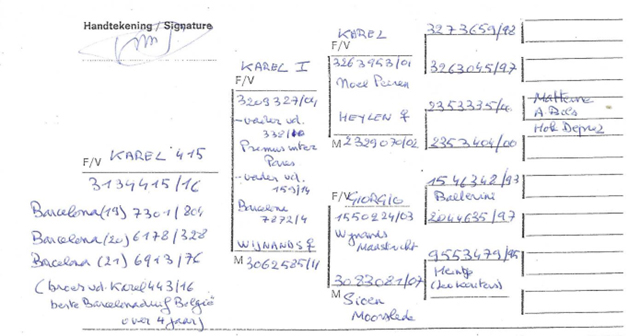 Handtekening / Signature
F/V KAREL 415
3134415/16
Barcelona (19) 7301/804
Barcelona (20) 6178/328
Barcelona (21) 6913/76
(broer vd. Karel 443/16
beste Barcelonaduif België
over 4 jaar)
KAREL I
F/V
3209327/04
- vader vd.
Primus inter
Pares
- vader vd.
159/14
Barcelona
7872/4
WIJNANDS ♀
M 3062585/11
KAREL
F/V
3263953/01
Noel Peiren
HEYLEN ♀
M 2329070/02
F/V GIORGIO
1550224/03
Wijnands
Maastricht
3083081/07
M Sioen
Moorslede
3273659/98
3263045/97
2353404/00
1546348/93
Ballerini
2044635/97
9553479/95